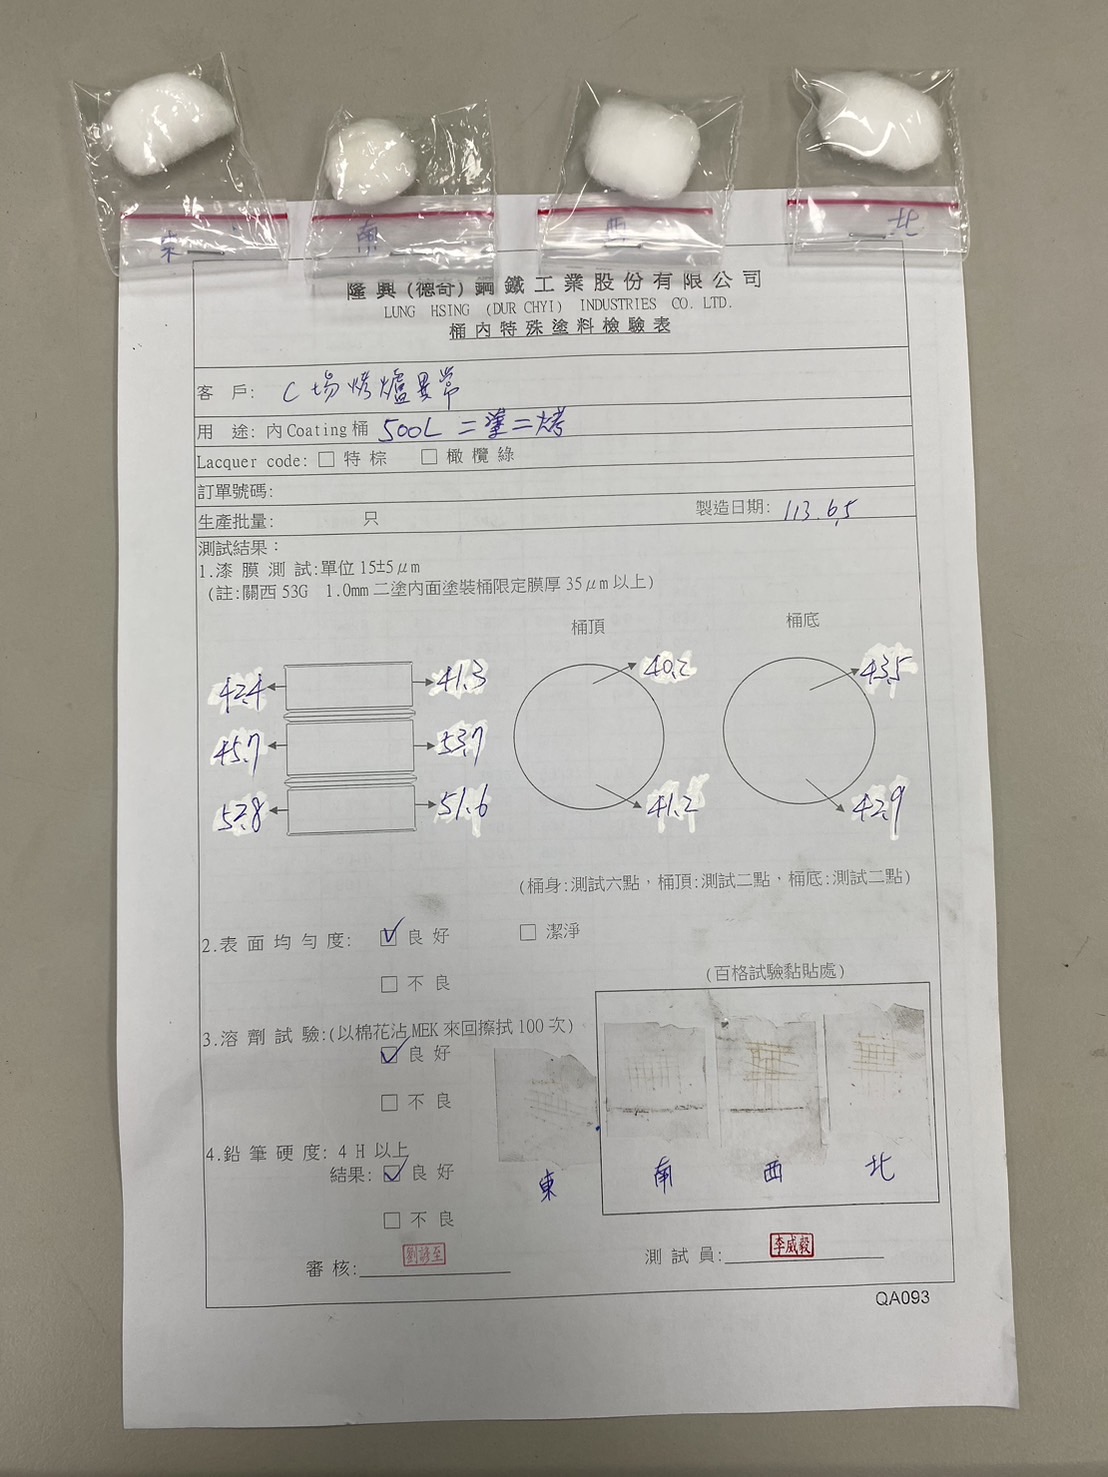 東
南
西
北
隆興(德奇)鋼鐵工業股份有限公司
LUNG HSING (DUR CHYI) INDUSTRIES CO. LTD.
桶內特殊塗料檢驗表
客 戶: C場烤爐異常
用 途: 內Coating桶 500L 二塗二烤
Lacquer code: □ 特棕 □ 橄欖綠
訂單號碼:
生產批量: 只 製造日期: 113.6.5
測試結果:
1.漆膜測試:單位15±5μm
(註:關西53G 1.0mm二塗內面塗裝桶限定膜厚35μm以上)
桶頂 桶底
42.4 41.3 40.2 43.5
45.7 53.7
52.8 51.6 41.2 42.9
(桶身:測試六點，桶頂:測試二點、桶底:測試二點)
2.表面均勻度: ☑ 良好 □ 潔淨
□ 不良
(百格試驗黏貼處)
3.溶劑試驗:(以棉花沾MEK來回擦拭100次)
☑ 良好
□ 不良
4.鉛筆硬度: 4H以上
結果: ☑ 良好
東 南 西 北
□ 不良
審核: 劉諺至 測試員: 李威毅
QA093